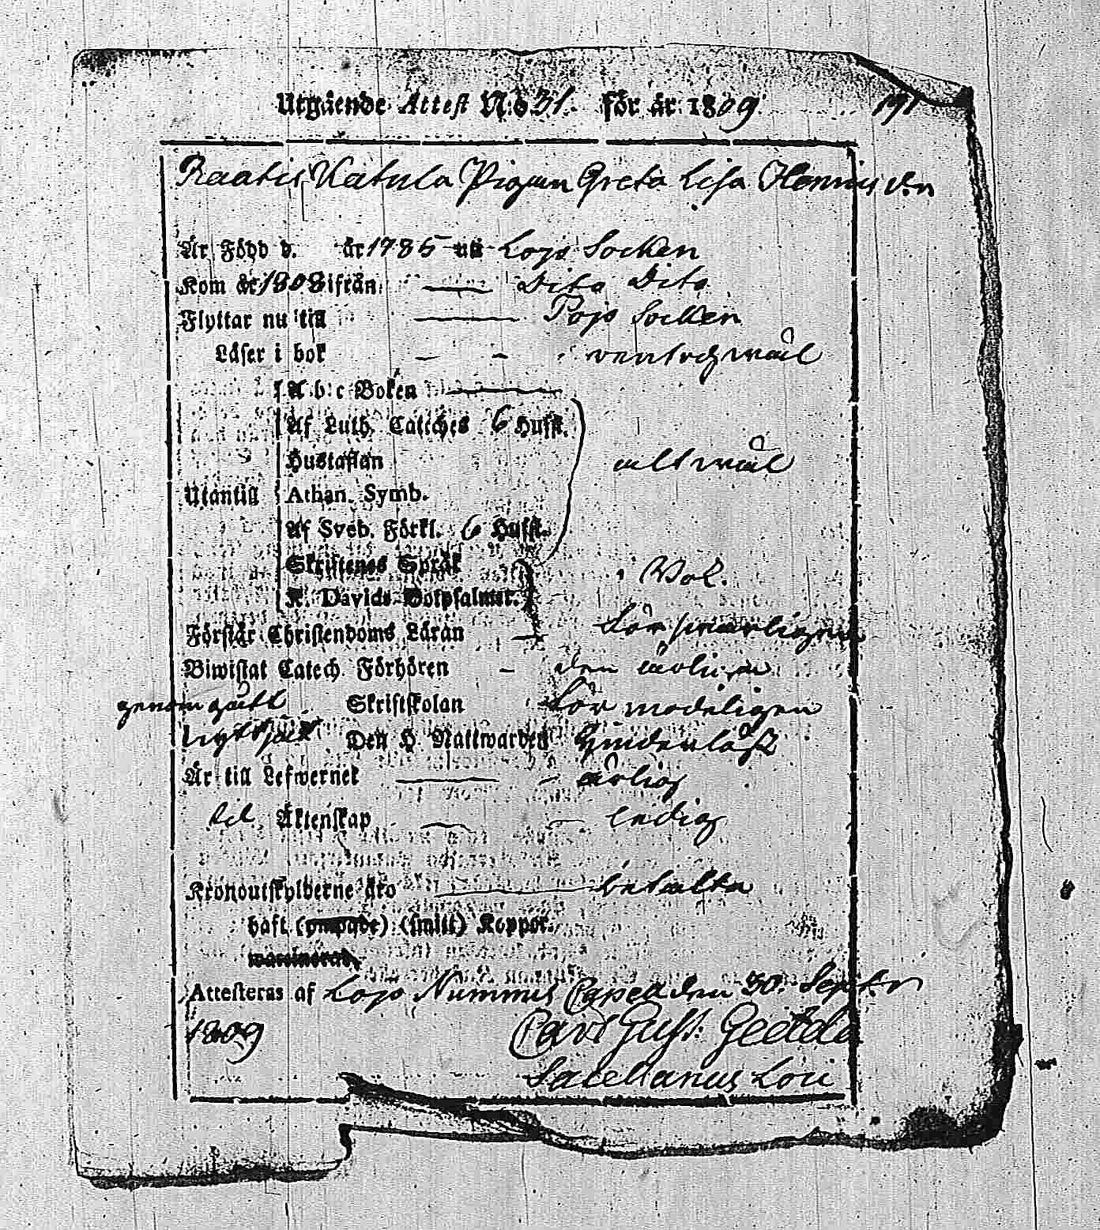 Utgående Attest N:o 31. För år 1809. 191
Raatis Katula Pigan Greta Lisa Henricsd:r
Är Född d. år 1785 uti Lojo Socken
Kom år 1808 ifrån Dito Dito
Flyttar nu till Pojo Socken
Läser i bok rent och wäl
A b c Boken
Af Luth. Catches 6 Hufst.
Hustaflan alt wäl
Utantill Athan. Symb.
Af Sveb. Förkl. 6 Hufst.
Skriftenes Språk
K. Davids Botpsalmer.
Förstår Christendoms Läran försvarligen
Biwistat Catech. Förhören
genomgått Skriftskolan
nyttjat Den H. Nattwarden
Är till Lefwernet ärlig
til Äktenskap ledig
Kronoutskylderne äro betalta
haft (ympade) (smitt) Koppor.
Attesteras af Lojo Nummis Capell den 30. Sept:r
1809 Carl Gust. Geitda
Sacellanus Loci